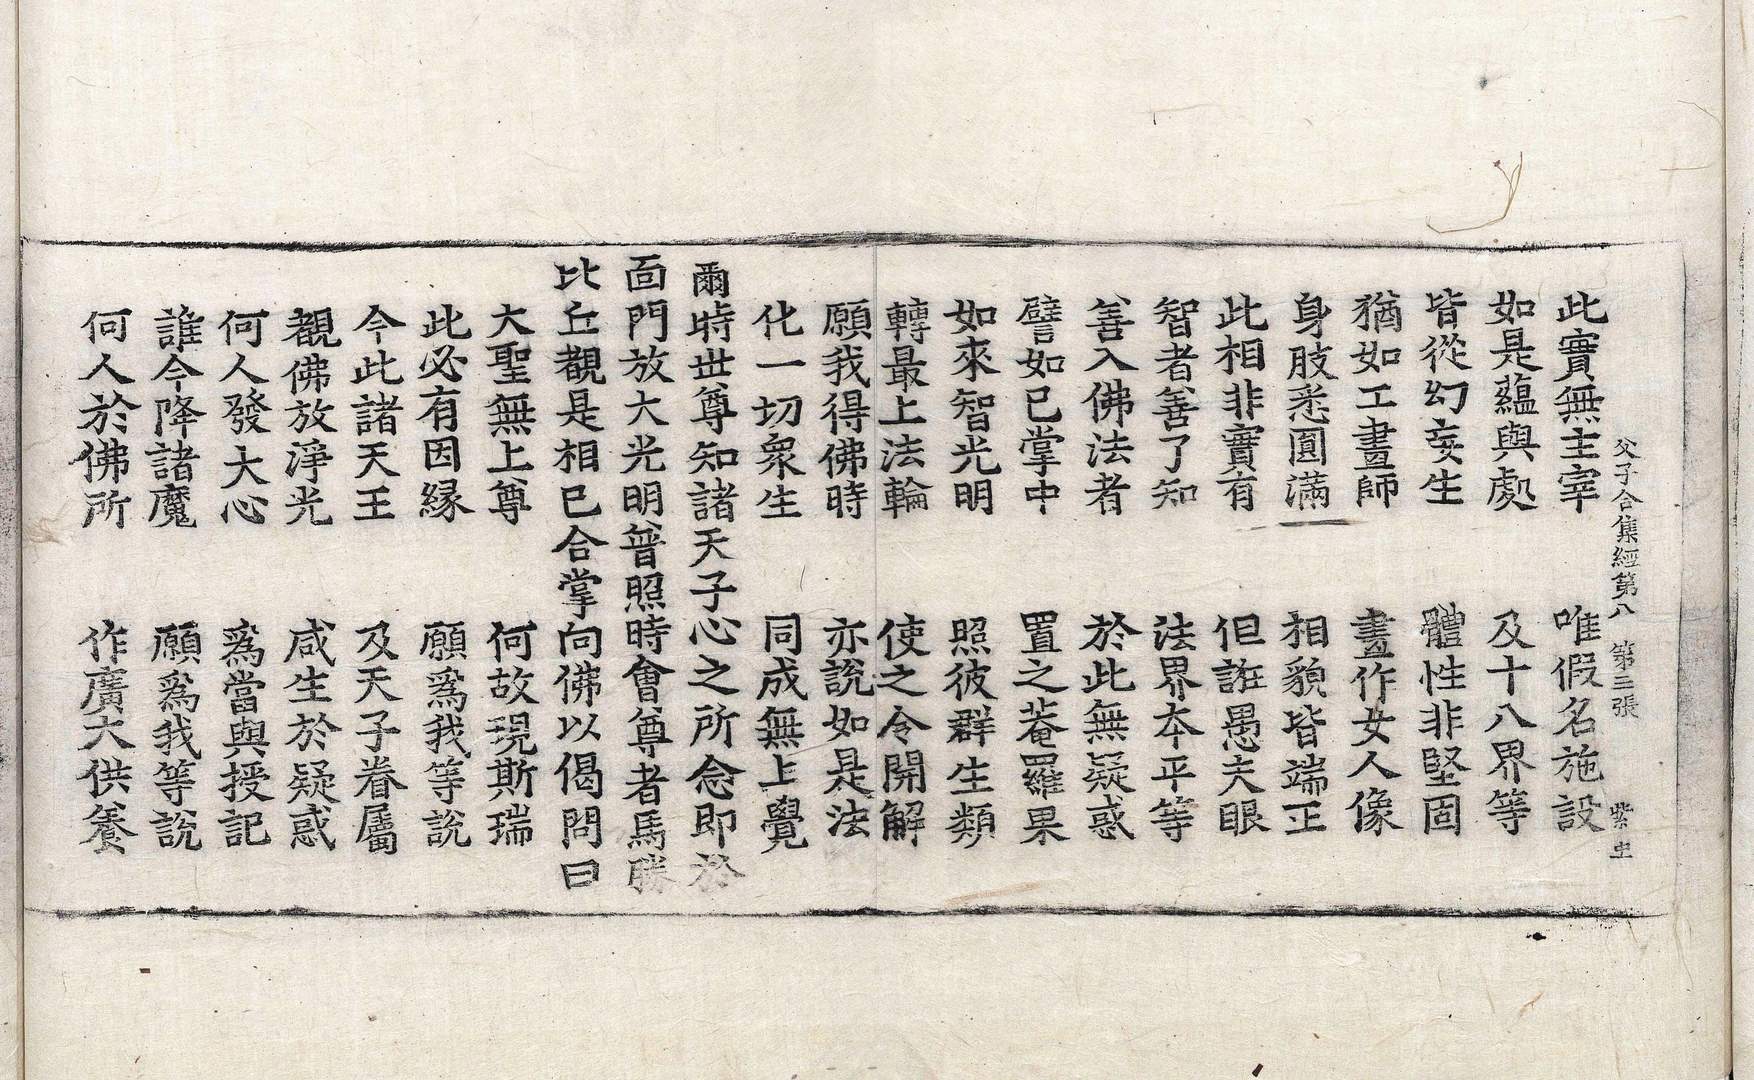 父子合集經第八 第三張
此實無主宰 唯假名施設
如是蘊與處 及十八界等
皆從幻妄生 體性非堅固
猶如工畫師 畫作女人像
身肢悉圓滿 相貌皆端正
此相非實有 但誑愚夫眼
智者善了知 法界本平等
善入佛法者 於此無疑惑
譬如已掌中 置之菴羅果
如來智光明 照彼群生類
轉最上法輪 使之令開解
願我得佛時 亦說如是法
化一切衆生 同成無上覺
爾時世尊知諸天子心之所念即於
面門放大光明普照時會尊者馬勝
比丘觀是相已合掌向佛以偈問曰
大聖無上尊 何故現斯瑞
此必有因緣 願爲我等說
今此諸天王 及天子眷屬
觀佛放淨光 咸生於疑惑
何人發大心 爲當與授記
誰今降諸魔 願爲我等說
何人於佛所 作廣大供養